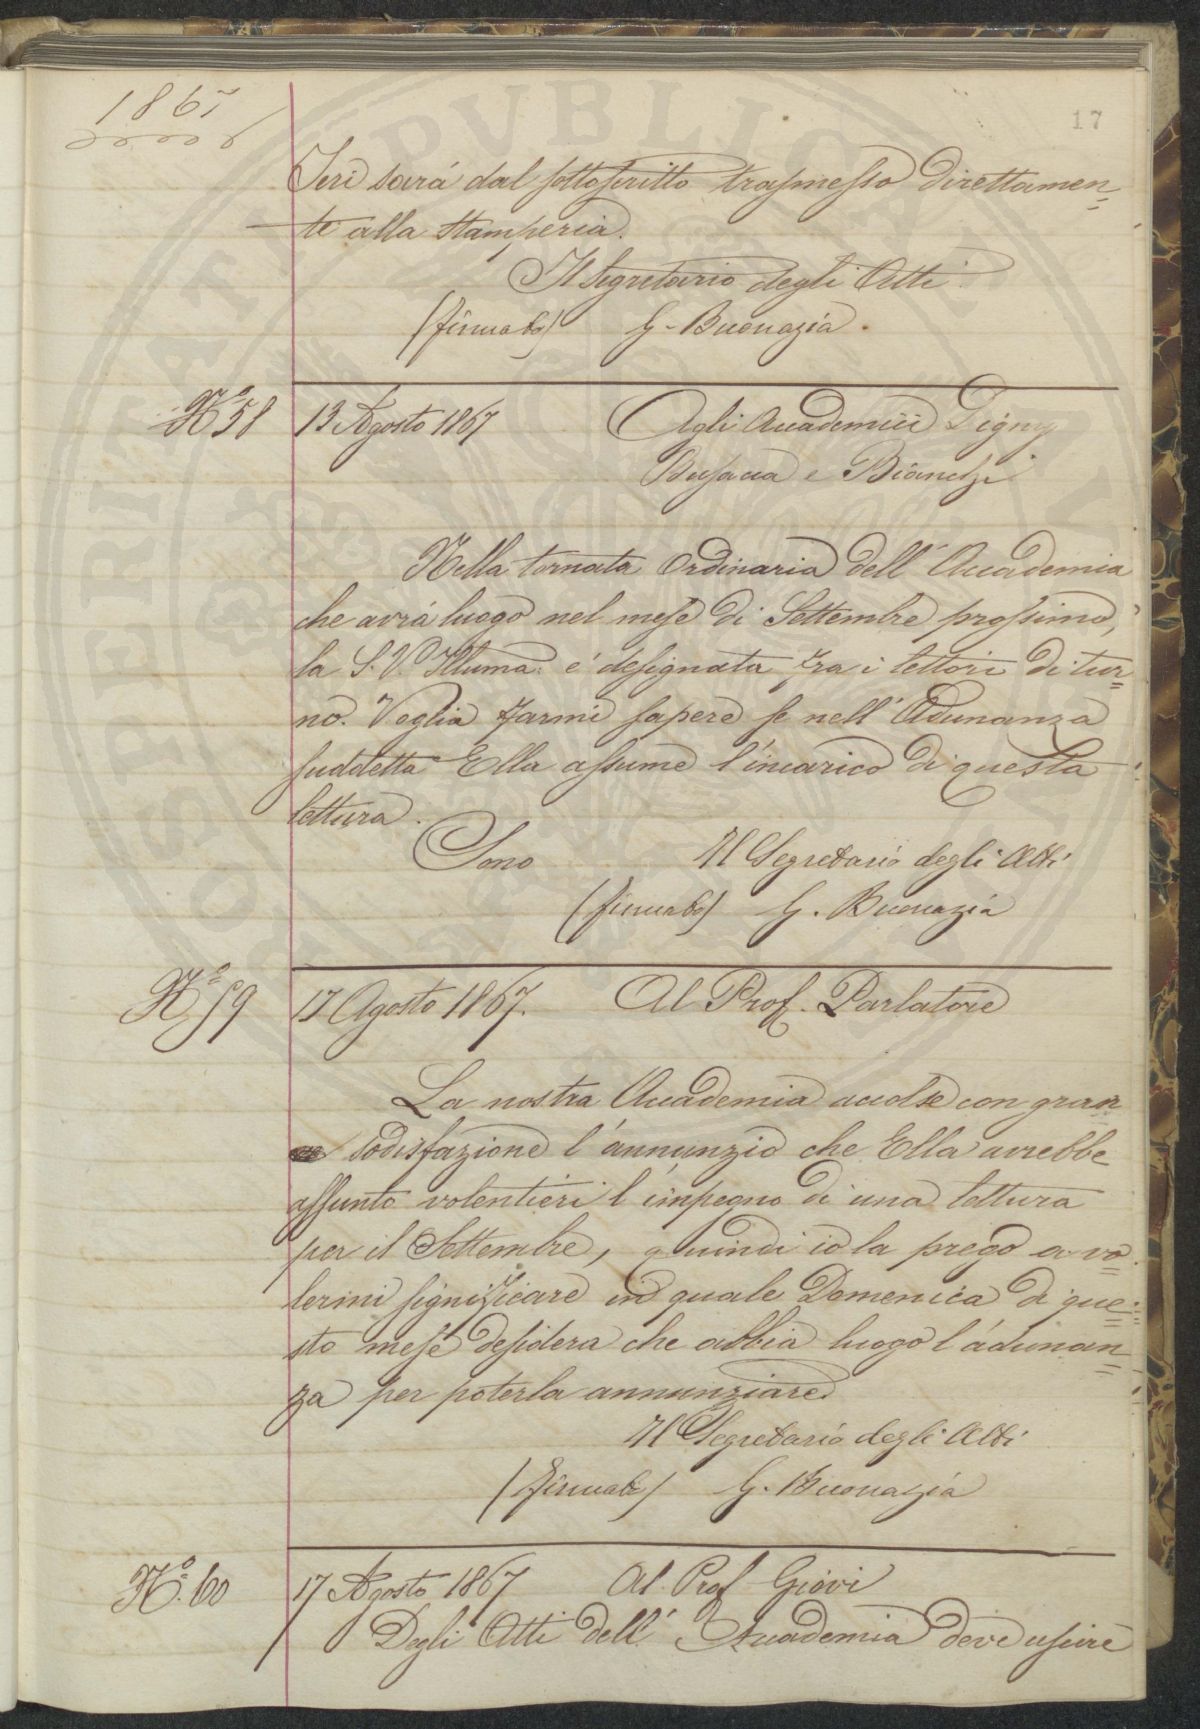 1867
17
Ieri sarà dal sottoscritto trasmesso direttamen=
te alla Stamperia.
Il Segretario degli Atti
(firmato) G. Buonazia.
N.º 58 13 Agosto 1867 Agli Accademici Digny
Busacca e Bianchi
Nella tornata Ordinaria dell'Accademia
che avrà luogo nel mese di Settembre prossimo,
la S. V. Illuma: é designata fra i lettori di tur=
no. Voglia farmi sapere se nell'Adunanza
suddetta Ella assume l'incarico di questa
lettura.
Sono Il Segretario degli Atti
(firmato) G. Buonazia
N.º 59 17 Agosto 1867. Al Prof. Parlatore
La nostra Accademia accolse con gran
sodisfazione l'annunzio che Ella avrebbe
assunto volentieri l'impegno di una lettura
per il Settembre, quindi io la prego a vo=
lermi significare in quale Domenica di que=
sto mese desidera che abbia luogo l'adunan=
za per poterla annunziare.
Il Segretario degli Atti
(firmato) G. Buonazia
N.º 60 17 Agosto 1867 Al Prof Giovi
Degli Atti dell'Accademia deve uscire